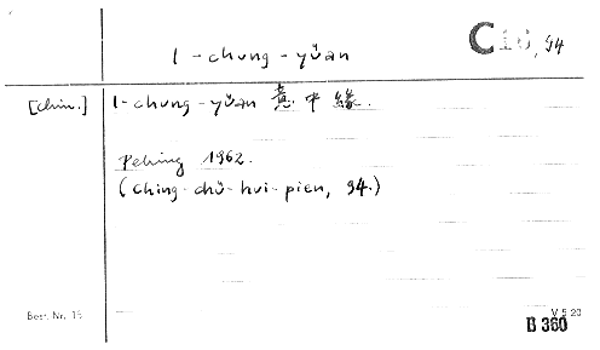 I-chung-yüan
C16, 94
[chin.] I-chung-yüan 意中緣.
Peking 1962.
(Ching-chü-hui-pien, 94.)
Best. Nr. 15
V 5 20
B 360